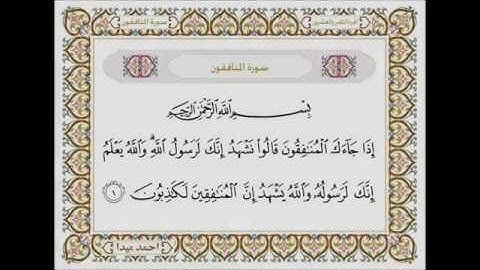 سورة المنافقون
سورة المنافقون
بِسْمِ اللَّهِ الرَّحْمَٰنِ الرَّحِيمِ
إِذَا جَآءَكَ الْمُنَٰفِقُونَ قَالُوا۟ نَشْهَدُ إِنَّكَ لَرَسُولُ اللَّهِ ۗ وَاللَّهُ يَعْلَمُ
إِنَّكَ لَرَسُولُهُۥ وَاللَّهُ يَشْهَدُ إِنَّ الْمُنَٰفِقِينَ لَكَٰذِبُونَ ١